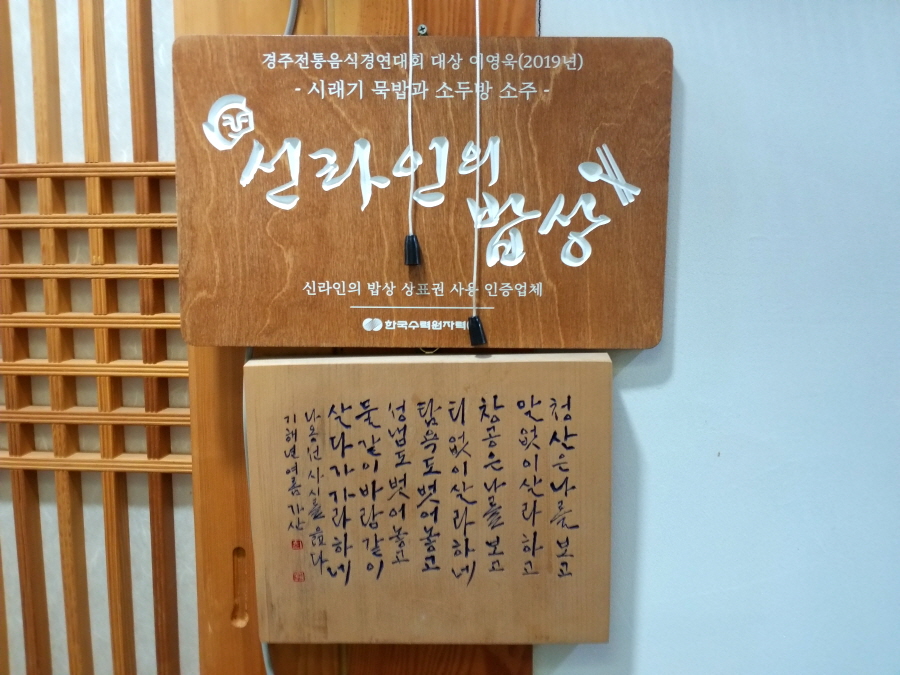 경주전통음식경연대회 대상 이영욱(2019년)
- 시래기 묵밥과 소두방 소주 -
신라인의
밥상
신라인의 밥상 상표권 사용 인증업체
한국수력원자력
청산은 나를 보고
말없이 살라하고
창공은 나를 보고
티없이 살라하네
탐욕도 벗어놓고
성냄도 벗어놓고
물같이 바람같이
살다가 가라하네
나옹선사 시를 쓰다
기해년 여름 가산